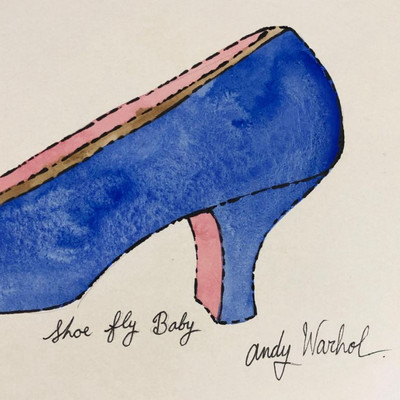 Shoe fly Baby
Andy Warhol.